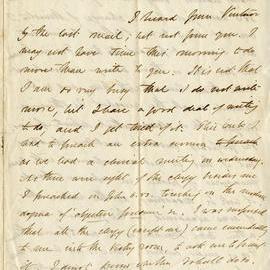 I heard from
by the last mail; not from you. I
may not have time this morning to do
more than write to you. It is not that
I am so very busy that I do not write
more, but I have a good deal of writing
to do, and I get tired of it. This week I
had to preach an extra sermon
as we had a clerical meeting on Wednesday.
There were eight of the clergy besides me
I preached on John on the modern
dogma of I was surprised
that all the clergy (except one) came
to me into the vestry room to ask me to print
it. I do not know whether I shall do so.